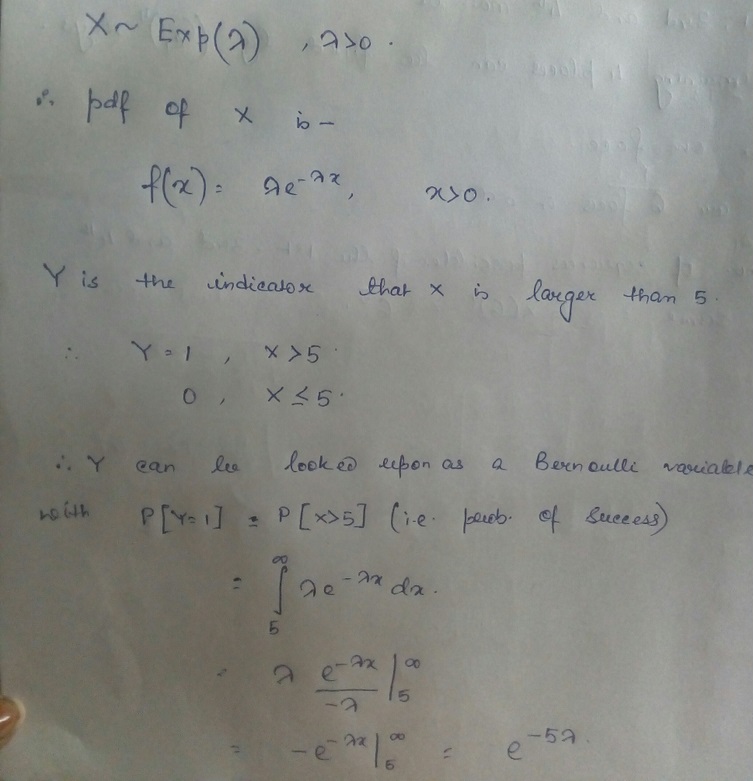 X ~ Exp(λ) , λ>0 .
∴ pdf of X is –
f(x) = λe^{-λx}, x>0.
Y is the indicator that X is larger than 5.
∴ Y = 1 , X > 5 .
0 , X ≤ 5 .
∴ Y can be looked upon as a Bernoulli variable
with P[Y=1] = P[X>5] (i.e. prob. of success)
= ∫_5^∞ λe^{-λx} dx.
= λ e^{-λx}/-λ |_5^∞
= -e^{-λx} |_5^∞ = e^{-5λ}.